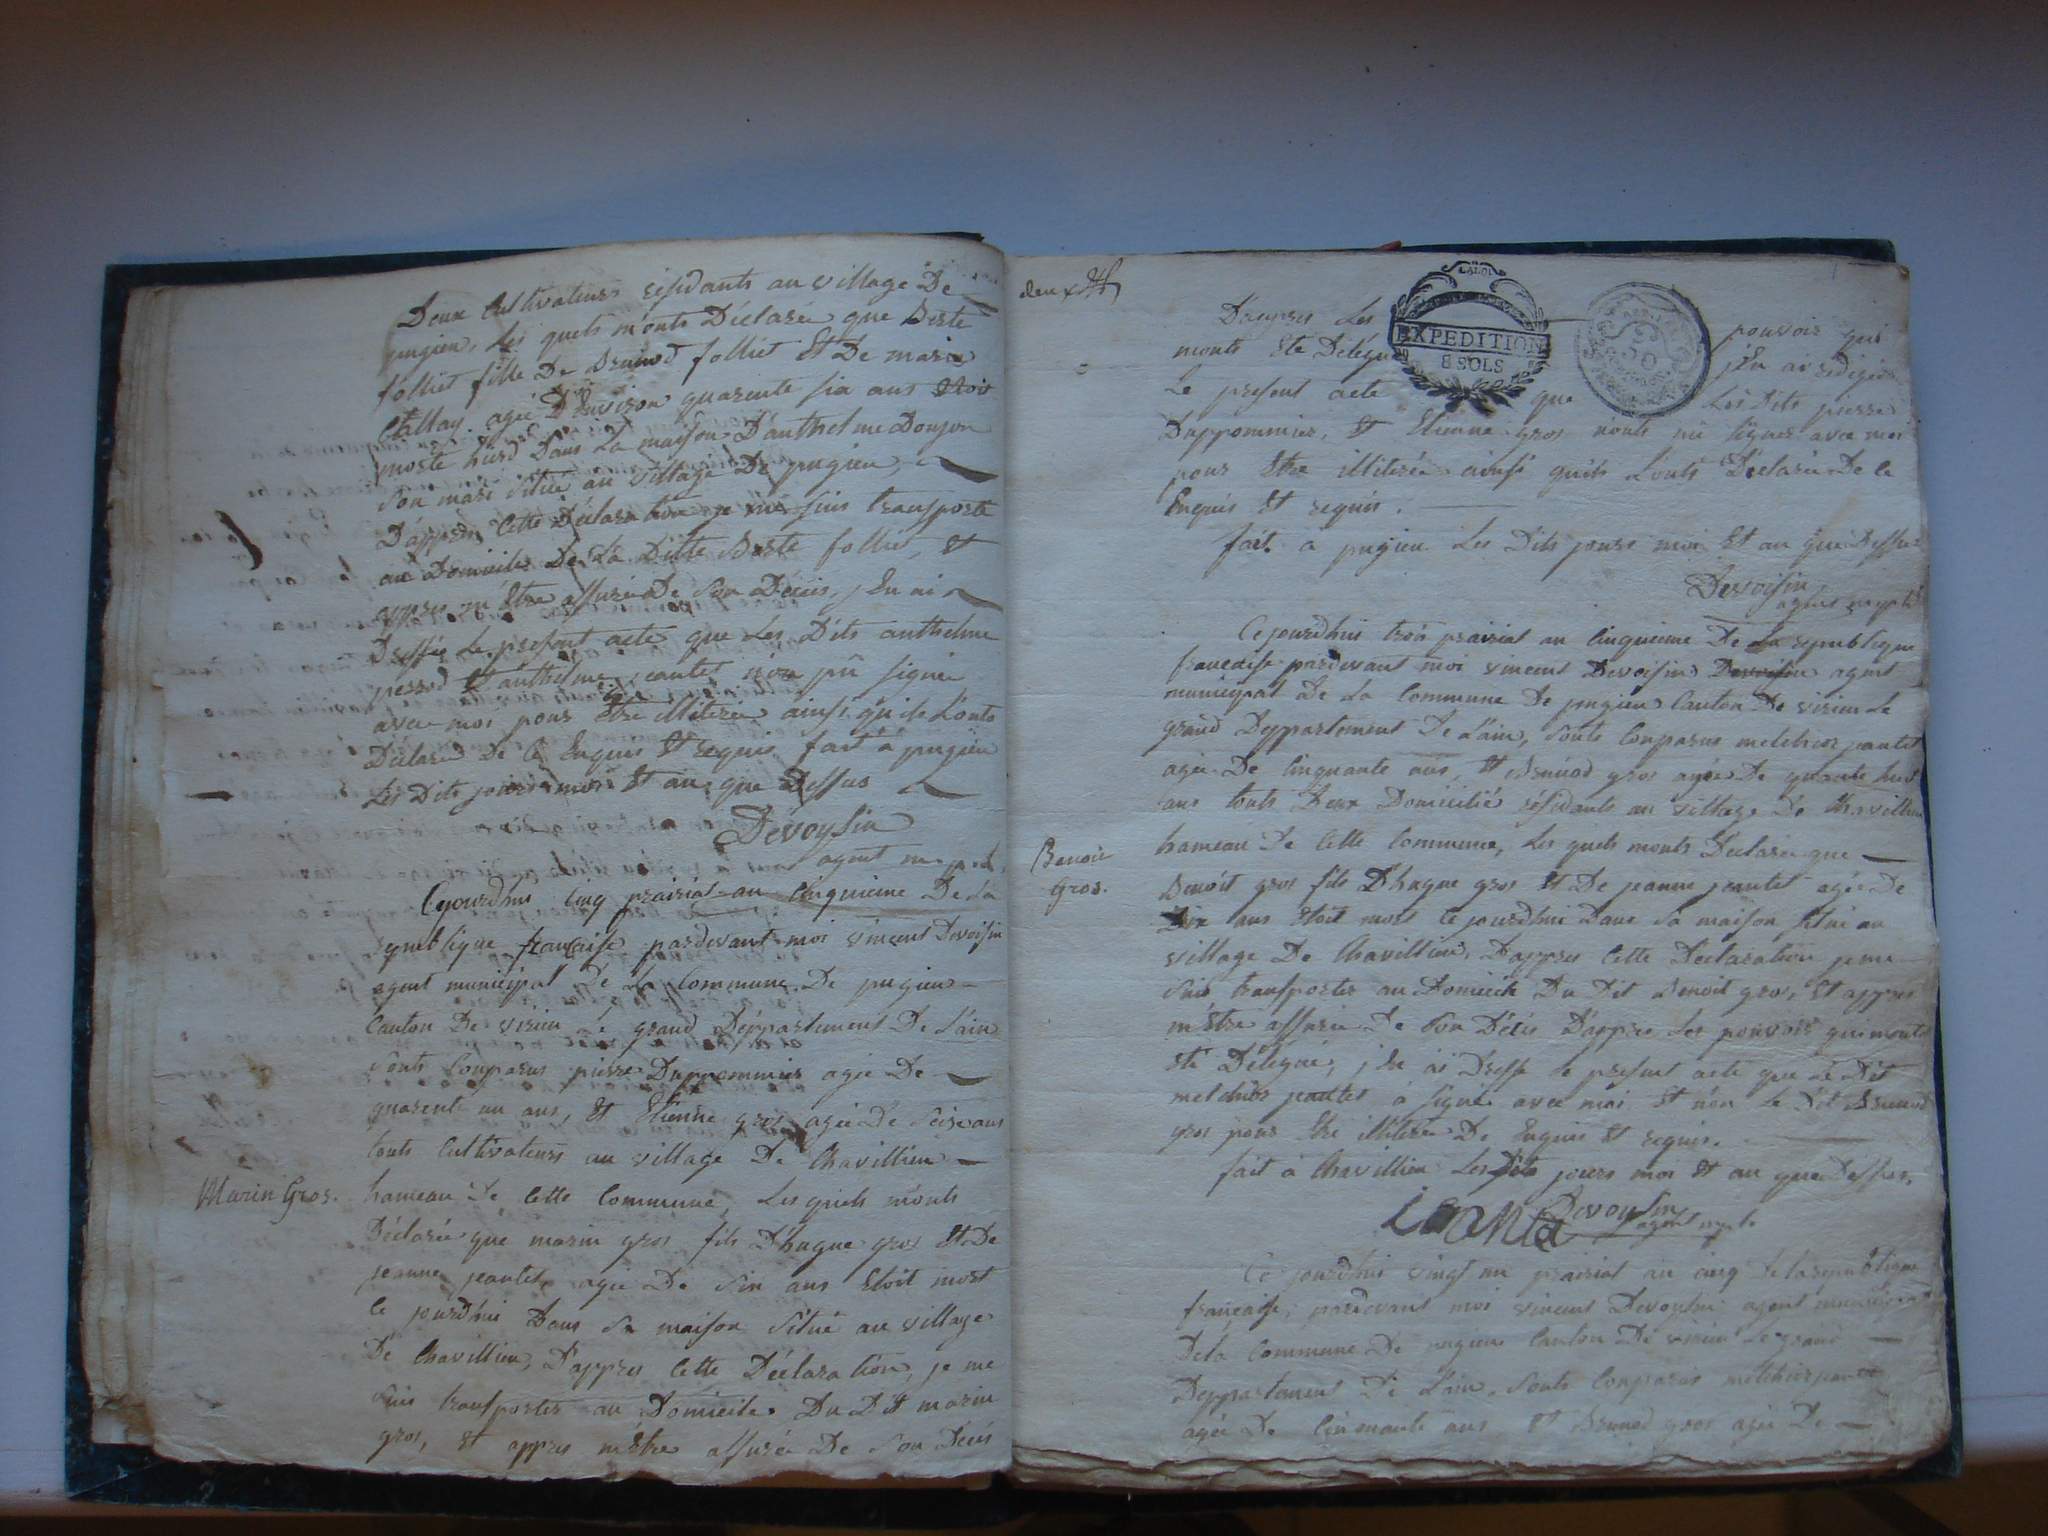 Deux Cultivateurs résidants au village De
pugieu, Les quels m'onts Déclarée que Berte
folliet fille De Brunod folliet Et De marie
Callay agée D'Environ quarente six ans Etoit
morte hierd Dans La maison D'anthelme Donjon
Son mari situé au village De pugieu
D'appres Cette Déclaration je me suis transporté
au Domicile De La Ditte Berte folliet, Et
appres m'Etre assurée De Son Décés, j'En ai
Dressée Le present acte que Les Dits anthelme
perrod Et anthelme jeantet non pû signée
avec moi pour Etre illiterée ainsi qu'ils L'onts
Déclaré De Ce Enquis Et requis fait à pugieu
Les Dits jours mois Et an que Dessus
Devoysin
agent mupal
Cejourdhui Cinq prairial an Cinquieme De La
republique française pardevant moi vincent Devoisin
agent municipal De La Commune De pugieu
Canton De virieu Le grand Déppartement De L'ain
Sonts Comparus pierre Duppommier agée De
quarente un ans, Et Etienne gros agée De Seise ans
touts Cultivateurs au village De Chavillieu
Marin Gros.
hameau De Cette Commune, Les quels m'onts
Déclarée que marin gros fils D'hugue gros Et De
jeanne jeantet agée De Six ans Etoit mort
Ce jourdhui Dans Sa maison Situé au village
De Chavillieu, D'appres Cette Déclaration, je me
suis transportée au Domicile Du Dit marin
gros, Et appres m'Etre assurée De Son Décés
deux
EXPEDITION
8 SOLS
D'appres Les pouvoir qui
monts Ete Delégué j'En ai redigée
Le present acte que Les Dits pierre
Duppommier, Et Etienne gros n'onts pû signer avec moi
pour Etre illiterée ainsi qu'ils L'onts Déclarée De Ce
Enquis Et requis.
fait à pugieu Les Dits jours mois Et an que Dessus
Devoisin
agent mupal
Cejourdhui trois prairial an Cinquieme De La republique
francaise pardevant moi vincent Devoisin Devoisin agent
municipal De La Commune De pugieu Canton De virieu Le
grand Deppartement De L'ain, Sonts Comparus melchior jeantet
agée De Cinquante ans, Et Brunod gros agée De quarante huit
ans touts Deux Domicilié résidants au village De Chavillieu
Benoit
Gros.
hameau De Cette Commune, Les quels monts Déclarée que
Benoit gros fils D'hugue gros Et De jeanne jeantet agée De
Dix ans Etoit mort Cejourdhui Dans Sa maison Situé au
village De Chavillieu, D'appres Cette Déclaration je me
Suis transportée au Domicile Du Dit Benoit gros, Et appres
m'Etre assurée De Son Décés D'appres Les pouvoir qui monts
Eté Délégué, j'En ai Dressé Le present acte que Le Dit
melchior jeantet à signée avec moi Et non Le Dit Brunod
gros pour Etre illiterée De Enquis Et requis.
fait à Chavillieu Les Dits jours mois Et an que Dessus.
Devoysin
agent mupal
Ce jourdhui vingt un prairial an cinq De la republique
française, pardevant moi vincent Devoysin agent municipal
De la Commune De pugieu Canton De virieu Le grand
Deppartement De L'ain, Sonts Comparus melchior jeantet
agée De Cinquante ans Et Brunod gros agée De